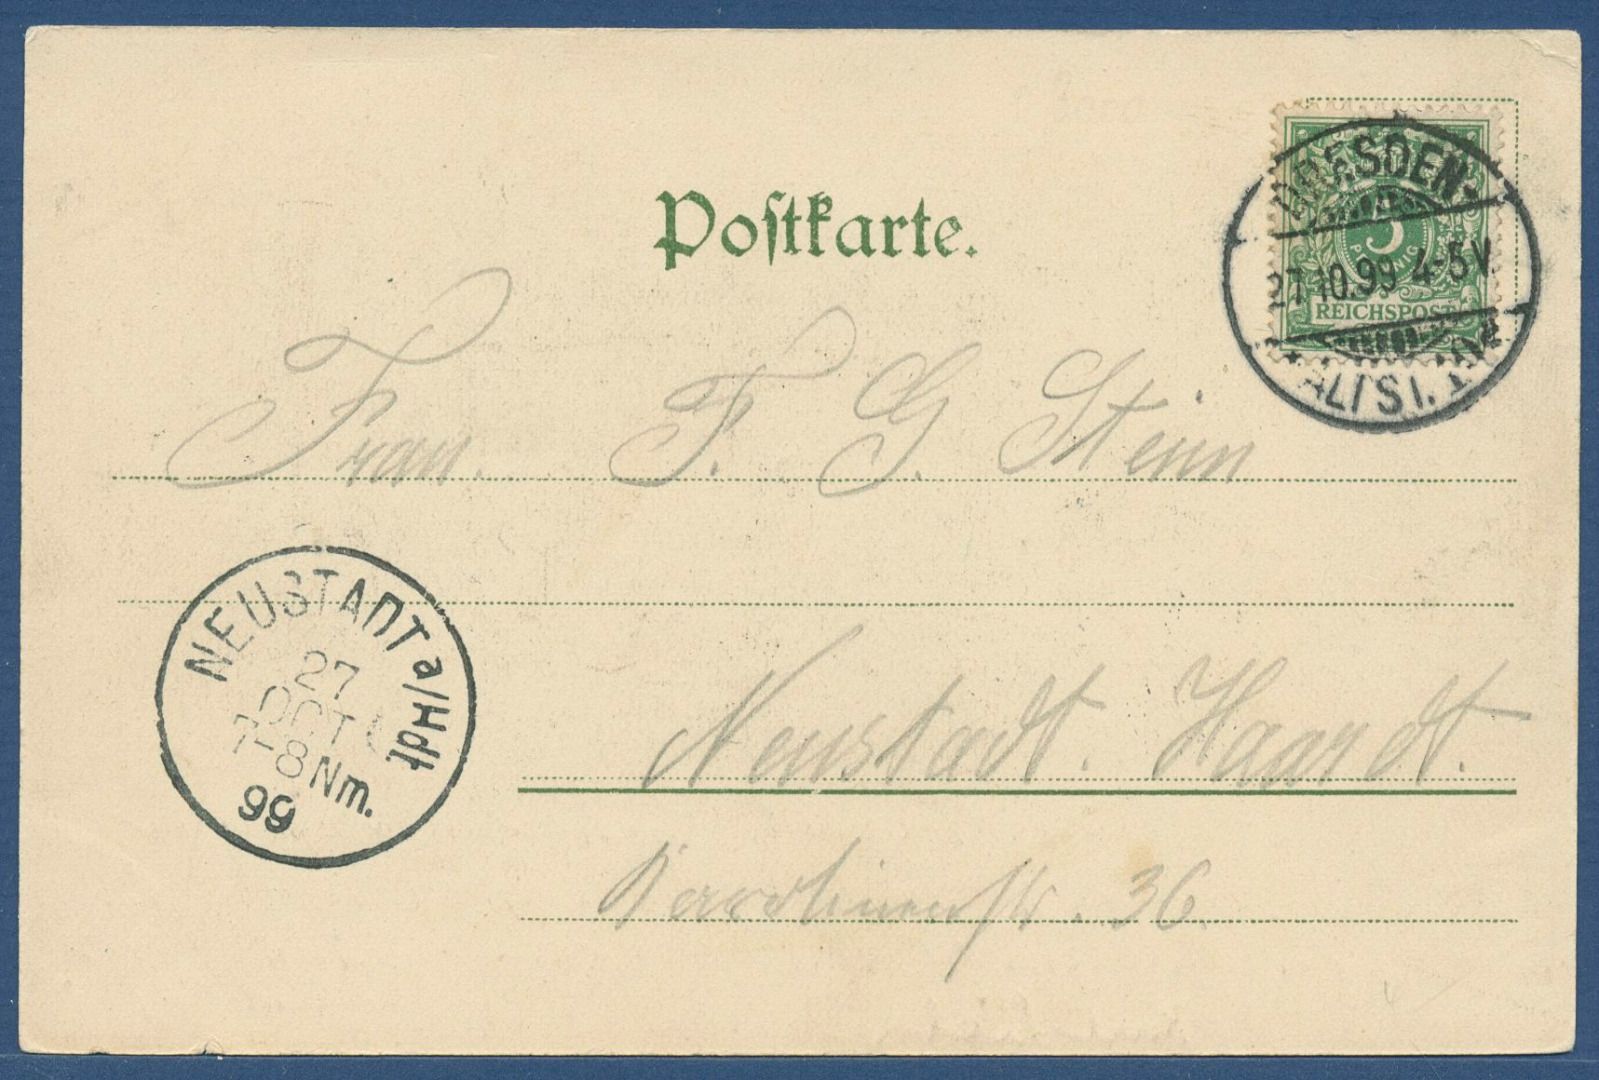 Postkarte.
DRESDEN-
27.10.99 4-5V.
ALTST.
5
PFENNIG
REICHSPOST
Frau. F. G. Stein
NEUSTADT a/Hdt
27
OCT
7-8Nm.
99
Neustadt. Haardt.
Karolinenstr. 36.